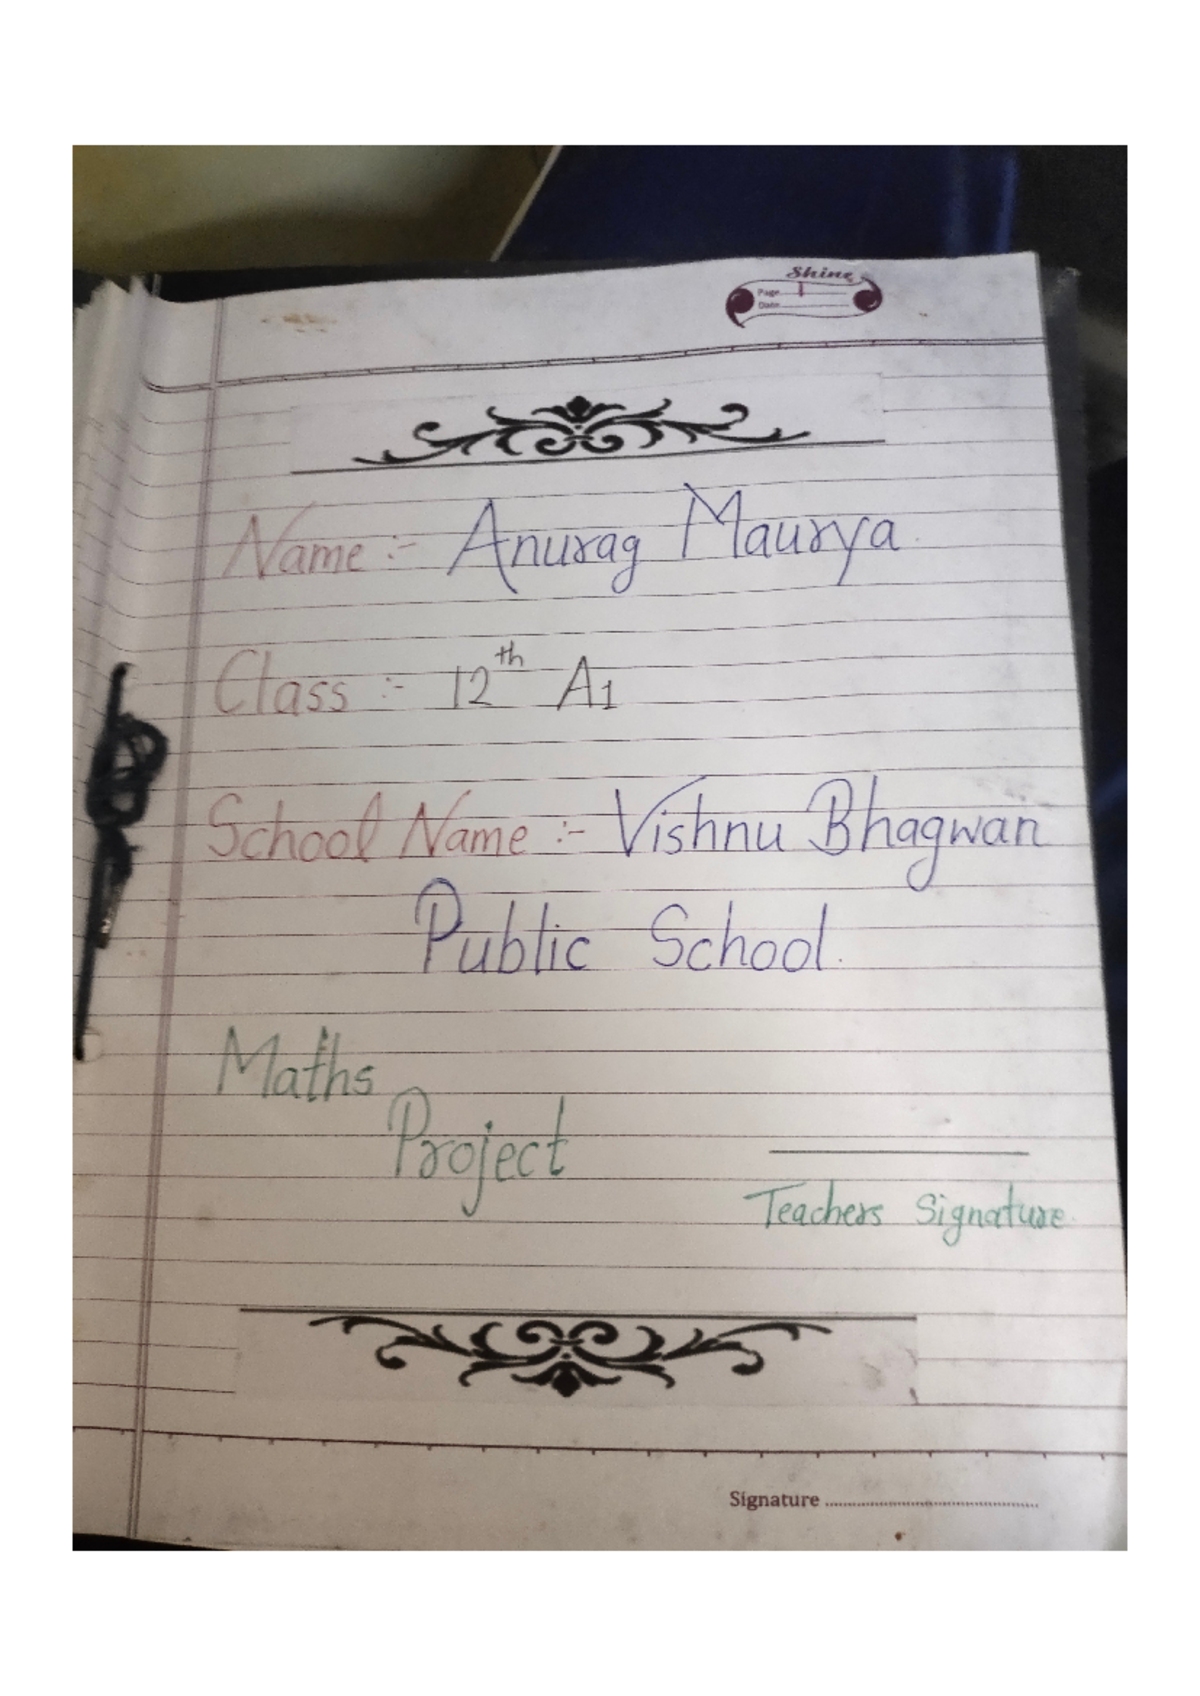 Shine
Page 1
Date
Name :- Anurag Maurya
Class :- 12th A1
School Name :- Vishnu Bhagwan
Public School.
Maths
Project
Teachers Signature
Signature